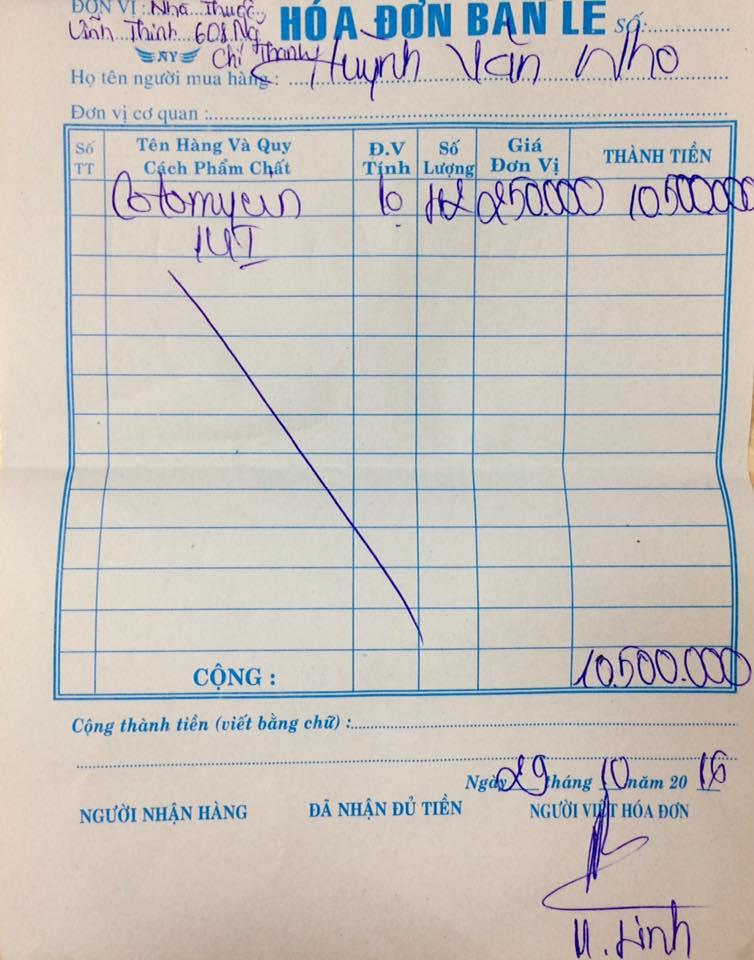 ĐƠN VỊ: Nhà Thuốc HÓA ĐƠN BÁN LẺ Số:
Vĩnh Thịnh 608 Ng
NY Chí Thanh
Họ tên người mua hàng: Huỳnh Văn Nho
Đơn vị cơ quan :
Số TT Tên Hàng Và Quy Cách Phẩm Chất Đ.V Tính Số Lượng Giá Đơn Vị THÀNH TIỀN
Colomycin lọ 42 250.000 10.500.000
1MI
CỘNG : 10.500.000
Cộng thành tiền (viết bằng chữ) :
Ngày 29 tháng 10 năm 20 16
NGƯỜI NHẬN HÀNG ĐÃ NHẬN ĐỦ TIỀN NGƯỜI VIẾT HÓA ĐƠN
Linh